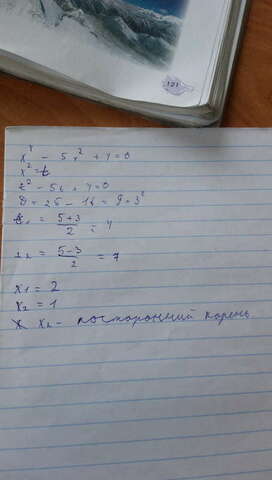 121
x⁴ - 5x² + 4 = 0
x² = t
t² - 5t + 4 = 0
D = 25 - 16 = 9 = 3²
t₁ = (5+3)/2 = 4
t₂ = (5-3)/2 = 1
x₁ = 2
x₂ = 1
x₂ - посторонний корень